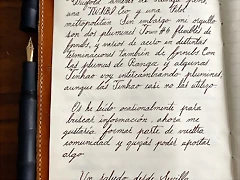 una TWSBI Eco y una Pilot
metropolitan. Sin embargo mi orgullo
son dos plumines Jowo #6 flexibles de
fondo, y varios de acero en distintas
terminaciones. También de formato Con
las plumas de Ranga y algunas
Jinhao voy intercambiando plumines,
aunque las Jinhao casi no las utilizo.
Os he leído ocasionalmente para
buscar información, ahora me
gustaría formar parte de vuestra
comunidad y quizás poder aportar
algo.
Un saludo desde Sevilla